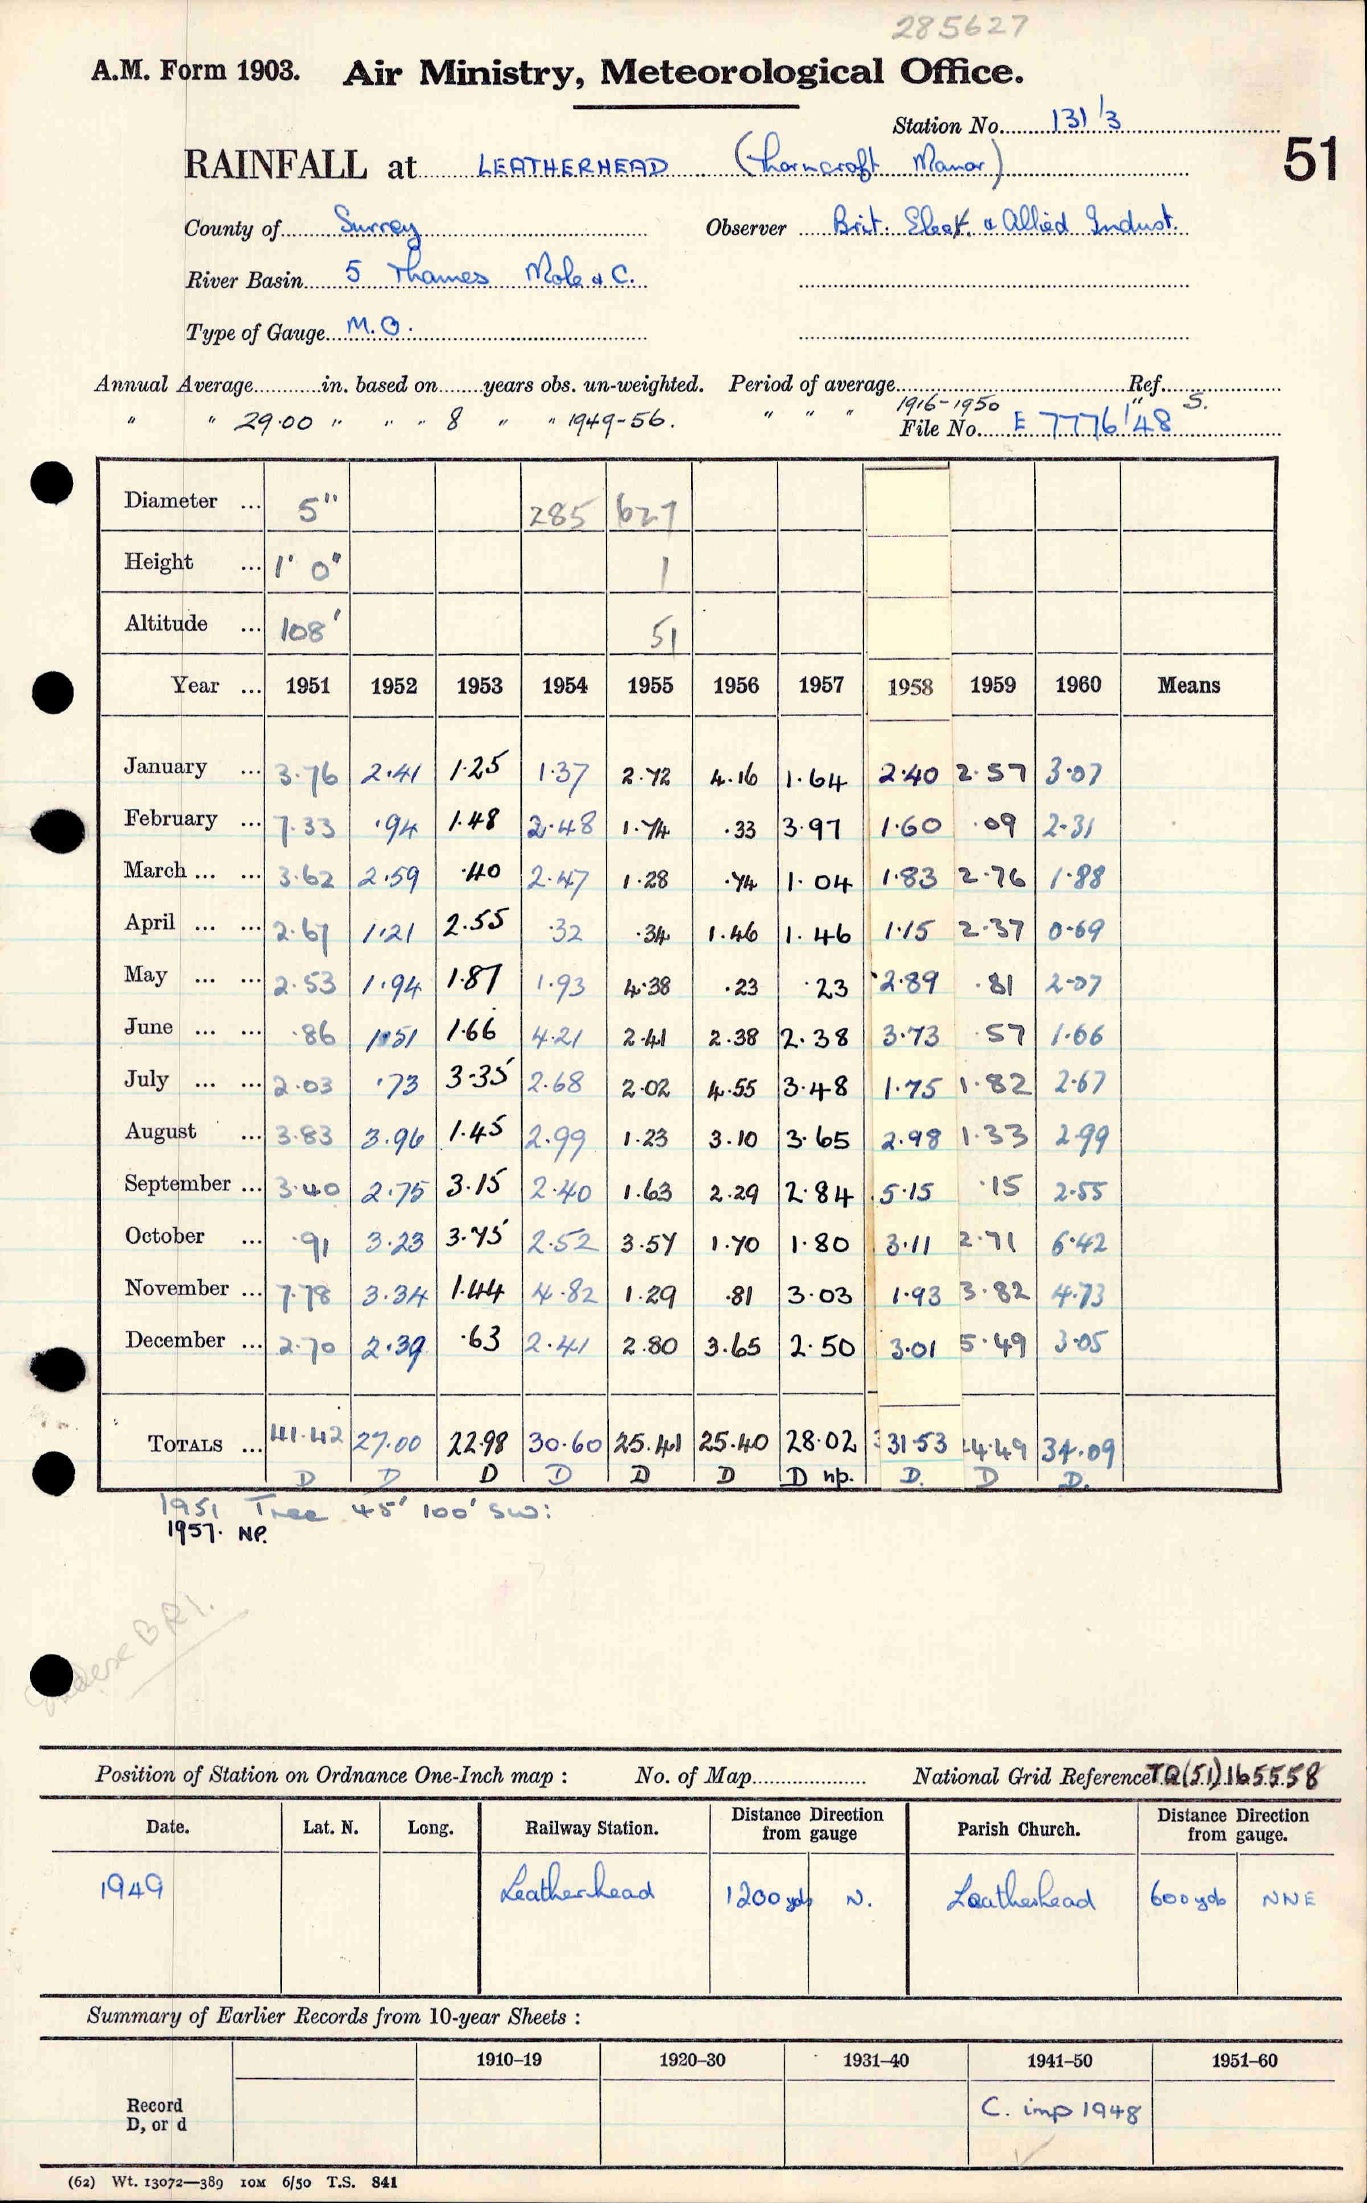 285627
A.M. Form 1903. Air Ministry, Meteorological Office.
Station No. 131/3
RAINFALL at LEATHERHEAD (Thorncroft Manor)
51
County of Surrey Observer Brit. Elect. & Allied Indust.
River Basin 5 Thames Mole & C.
Type of Gauge M.O.
Annual Average in. based on years obs. un-weighted. Period of average Ref.
" " 29.00 " " " 8 " " 1949-56. " " " 1916-1950 " S.
File No. E 7776/48
Diameter ... 5" 285 627
Height ... 1' 0" 1
Altitude ... 108' 51
Year ... 1951 1952 1953 1954 1955 1956 1957 1958 1959 1960 Means
January ... 3.76 2.41 1.25 1.37 2.72 4.16 1.64 2.40 2.57 3.07
February ... 7.33 .94 1.48 2.48 1.74 .33 3.97 1.60 .09 2.31
March ... ... 3.62 2.59 .40 2.47 1.28 .74 1.04 1.83 2.76 1.88
April ... ... 2.67 1.21 2.55 .32 .34 1.46 1.46 1.15 2.37 0.69
May ... ... 2.53 1.94 1.87 1.93 4.38 .23 .23 2.89 .81 2.07
June ... ... .86 1.51 1.66 4.21 2.41 2.38 2.38 3.73 .57 1.66
July ... ... 2.03 .73 3.35 2.68 2.02 4.55 3.48 1.75 1.82 2.67
August ... 3.83 3.96 1.45 2.99 1.23 3.10 3.65 2.98 1.33 2.99
September ... 3.40 2.75 3.15 2.40 1.63 2.29 2.84 5.15 .15 2.55
October ... .91 3.23 3.75 2.52 3.57 1.70 1.80 3.11 2.71 6.42
November ... 7.78 3.34 1.44 4.82 1.29 .81 3.03 1.93 3.82 4.73
December ... 2.70 2.39 .63 2.41 2.80 3.65 2.50 3.01 5.49 3.05
TOTALS ... 41.42 27.00 22.98 30.60 25.41 25.40 28.02 31.53 24.49 34.09
D D D D D D D np. D. D D.
1951 Tree 45' 100' SW:
1957. NP.
BRI.
Position of Station on Ordnance One-Inch map : No. of Map National Grid Reference TQ(51)165558
Date. Lat. N. Long. Railway Station. Distance Direction from gauge Parish Church. Distance Direction from gauge.
1949 Leatherhead 1200 yds N. Leatherhead 600 yds NNE
Summary of Earlier Records from 10-year Sheets :
1910–19 1920–30 1931–40 1941–50 1951–60
Record D, or d C. imp 1948
(62) Wt. 13072—389 10M 6/50 T.S. 841